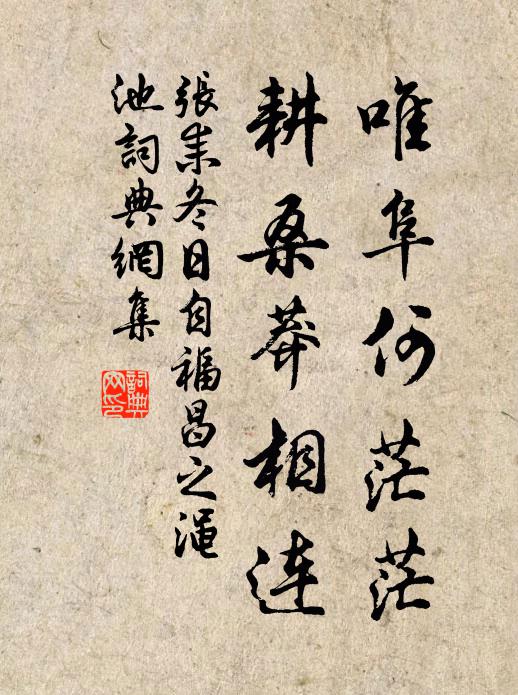 唯阜何茫茫
耕桑莽相连
張耒冬日自福昌之渑
池詞典網集
詞典
网印